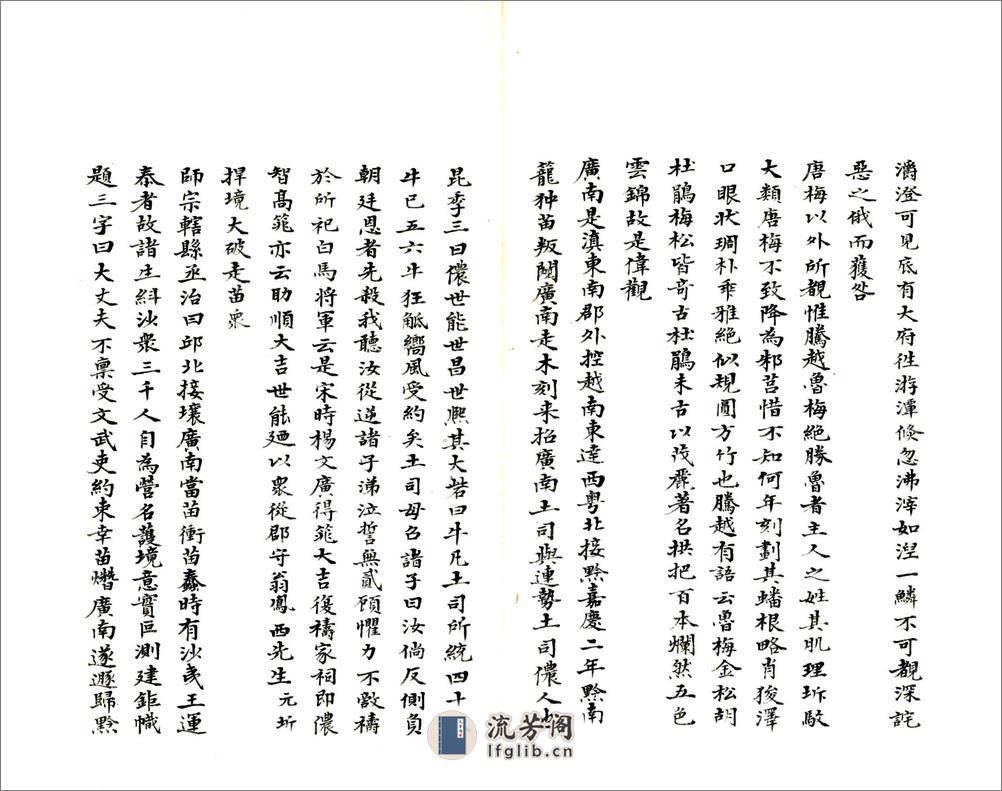 澝澄可见底有大府徃游潭倏忽沸滓如湼一鱗不可覩深詫
惡之俄而獲咎
唐梅以外所覩惟騰越魯梅絶勝魯者主人之姓其肌理坼皵
大類唐梅不致降為邾莒惜不知何年刻劃其蟠根略肖狻澤
口眼狀琱朴乖雅絶似規圓方竹也騰越有語云魯梅金松胡
杜鵑梅松皆竒古杜鵑未古以茂麗著名拱把百本爛然五色
雲錦故是偉觀
廣南是滇東南郡外控越南東達西粵北接黔嘉慶二年黔南
籠狆苗叛關廣南走木刻来招廣南土司與連勢土司儂人也
昆季三曰儂世能世昌世熙其大砦曰牛凡土司所統四十
牛已五六牛狂觝嚮風受約矣土司母召諸子曰汝倘反側負
朝廷恩者先殺我聽汝從逆諸子涕泣誓無貳顧懼力不敵禱
於所祀白馬將軍云是宋時楊文廣得筄大吉復禱家祠即儂
智髙筄亦云助順大吉世能廼以衆從郡守翁鳳西先生元圻
捍境大破走苗衆
師宗轄縣丞治曰邱北接壤廣南當苗衝苗蠢時有沙彧王運
泰者故諸生糾沙衆三千人自為營名護境意實叵測建鉅幟
題三字曰大丈夫不稟受文武吏約束幸苗熸廣南遂遯歸黔
流芳阁
lfglib.cn